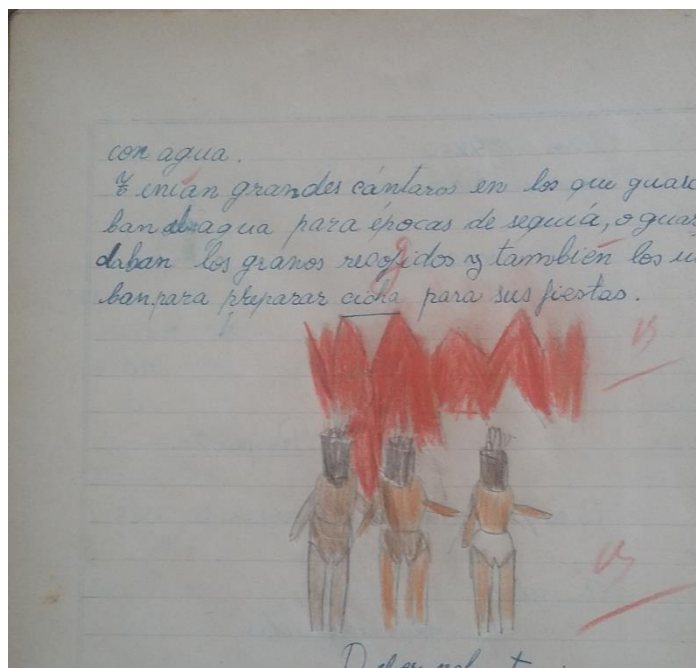 con agua.
Tenían grandes cántaros en los que guarda
ban agua para épocas de seguiá, o guar
daban los granos recogidos y también los u
ban para preparar cicha para sus fiestas.